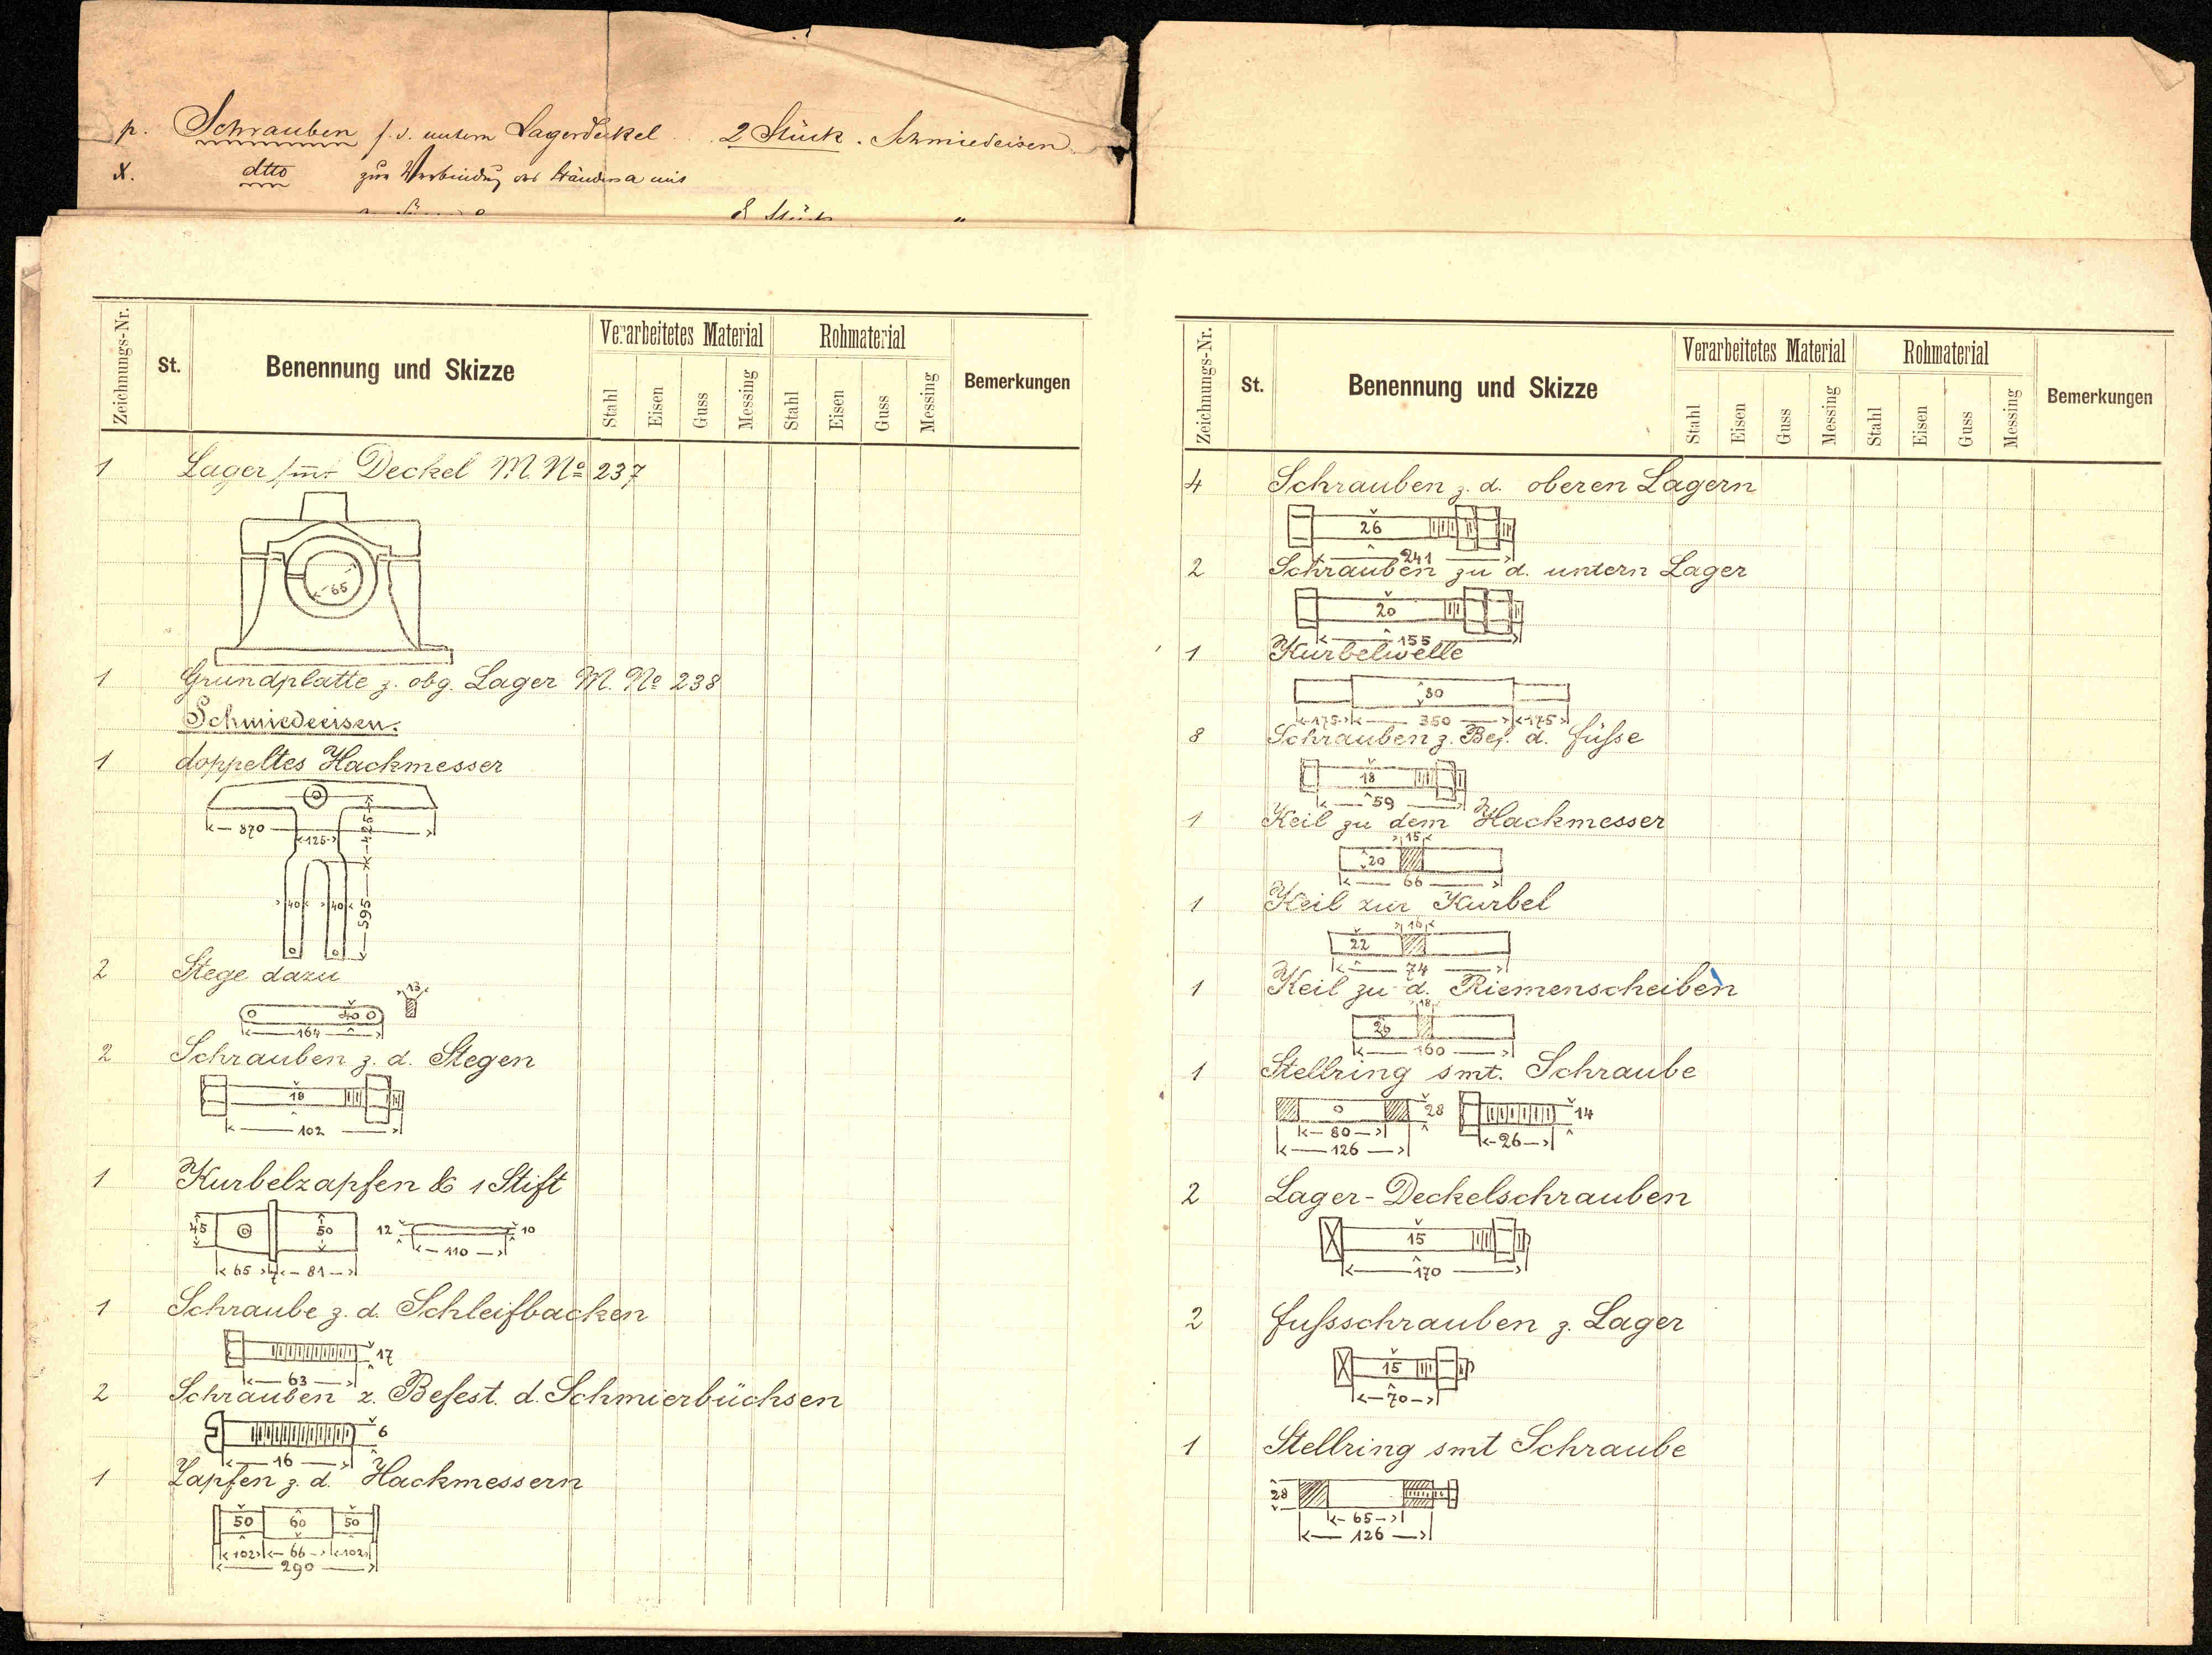 p. Schrauben f. d. untern Lagerdeckel 2 Stück. Schmiedeisen
x. dtto zur Verbindung des Ständers a mit
8 Stück "
Zeichnungs-Nr. St. Benennung und Skizze Verarbeitetes Material Rohmaterial Bemerkungen
Stahl Eisen Guss Messing Stahl Eisen Guss Messing
1 Lager smt Deckel M. No 237
65
1 Grundplatte z. obg. Lager M. No 238
Schmiedeeisen.
1 doppeltes Hackmesser
870 125 425
40 40 595
2 Stege dazu
13
40
164
2 Schrauben z. d. Stegen
18
102
1 Kurbelzapfen & 1 Stift
45 50 12 10
65 7 81 110
1 Schraube z. d. Schleifbacken
17
63
2 Schrauben z. Befest. d. Schmierbüchsen
6
16
1 Zapfen z. d. Hackmessern
50 60 50
102 66 102
290
Zeichnungs-Nr. St. Benennung und Skizze Verarbeitetes Material Rohmaterial Bemerkungen
Stahl Eisen Guss Messing Stahl Eisen Guss Messing
4 Schrauben z. d. oberen Lagern
26
241
2 Schrauben zu d. untern Lager
20
155
1 Kurbelwelle
80
175 350 175
8 Schrauben z. Bef. d. füsse
18
59
1 Keil zu dem Hackmesser
15
20
66
1 Keil zur Kurbel
16
22
74
1 Keil zu d. Riemenscheiben
18
26
160
1 Stellring smt. Schraube
28 14
80 26
126
2 Lager-Deckelschrauben
15
170
2 fussschrauben z. Lager
15
70
1 Stellring smt Schraube
28
65
126